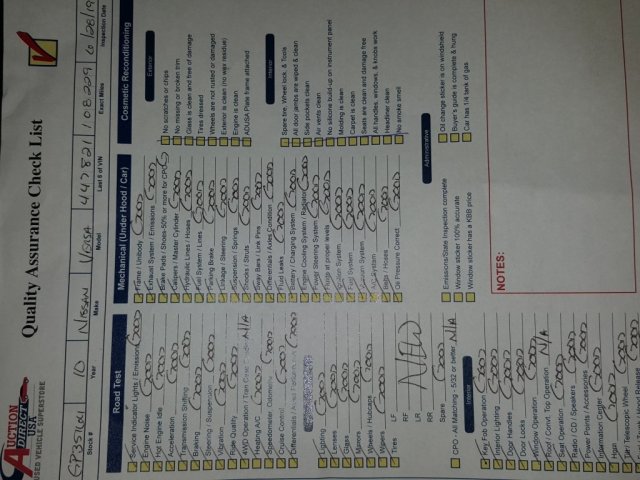 AUCTION
DIRECT
USA
USED VEHICLE SUPERSTORE
Quality Assurance Check List
10 NISSAN VERSA 447821 108229 6/28/19
Stock # Year Make Model Last 6 of VIN Exact Miles Inspection Date
Road Test
Service Indicator Lights / Emissions GOOD
Engine Noise GOOD
Hot Engine Idle GOOD
Acceleration GOOD
Transmission Shifting GOOD
Braking GOOD
Steering / Suspension GOOD
Vibration GOOD
Ride Quality GOOD
4WD Operation / N/A
Heating A/C GOOD
Speedometer / Odometer GOOD
Cruise Control GOOD
Differentials / GOOD
Lighting GOOD
Lenses GOOD
Glass GOOD
Mirrors GOOD
Wheels / Hubcaps GOOD
Wipers GOOD
Tires LF
RF
LR NEW
RR
Spare GOOD
CPO - All Matching - 5/32 or better N/A
Interior
Key Fob Operation GOOD
Interior Lighting GOOD
Door Handles GOOD
Door Locks GOOD
Window Operation GOOD
Roof / Conv. Top Operation N/A
Seat Operation GOOD
Radio / CD / Speakers GOOD
Power Points / Accessories GOOD
Information Center GOOD
Horn GOOD
Tilt / Telescopic Wheel GOOD
Mechanical (Under Hood / Car)
Frame / Unibody GOOD
Exhaust System / Emissions GOOD
Brake Pads / Shoes-50% or more for CPO GOOD
Calipers / Master Cylinder GOOD
Hydraulic Lines / Hoses GOOD
Fuel System / Lines GOOD
Parking Brake GOOD
Linkage / Steering GOOD
Suspension / Springs GOOD
Shocks / Struts GOOD
Sway Bars / Link Pins GOOD
Differentials / Axles Condition GOOD
Fluid Leaks GOOD
Battery / Charging System GOOD
Engine Cooling System / Radiator GOOD
Power Steering System GOOD
Fluids at proper levels GOOD
Ignition System GOOD
Fuel System GOOD
Vacuum System GOOD
A/C System GOOD
Belts / Hoses GOOD
Oil Pressure Correct GOOD
Emissions/State Inspection complete
Window sticker 100% accurate
Window sticker has a KBB price
Cosmetic Reconditioning
Exterior
No scratches or chips
No missing or broken trim
Glass is clean and free of damage
Tires dressed
Wheels are not rusted or damaged
Exterior is clean (no wax residue)
Engine is clean
ADUSA Plate frame attached
Interior
Spare tire, Wheel lock, & Tools
All door jambs are wiped & clean
Side pockets clean
Air vents clean
No silicone build-up on instrument panel
Molding is clean
Carpet is clean
Seats are clean and damage free
All handles, windows, & knobs work
Headliner clean
No smoke smell
Administrative
Oil change sticker is on windshield
Buyer's guide is complete & hung
Car has 1/4 tank of gas
NOTES: